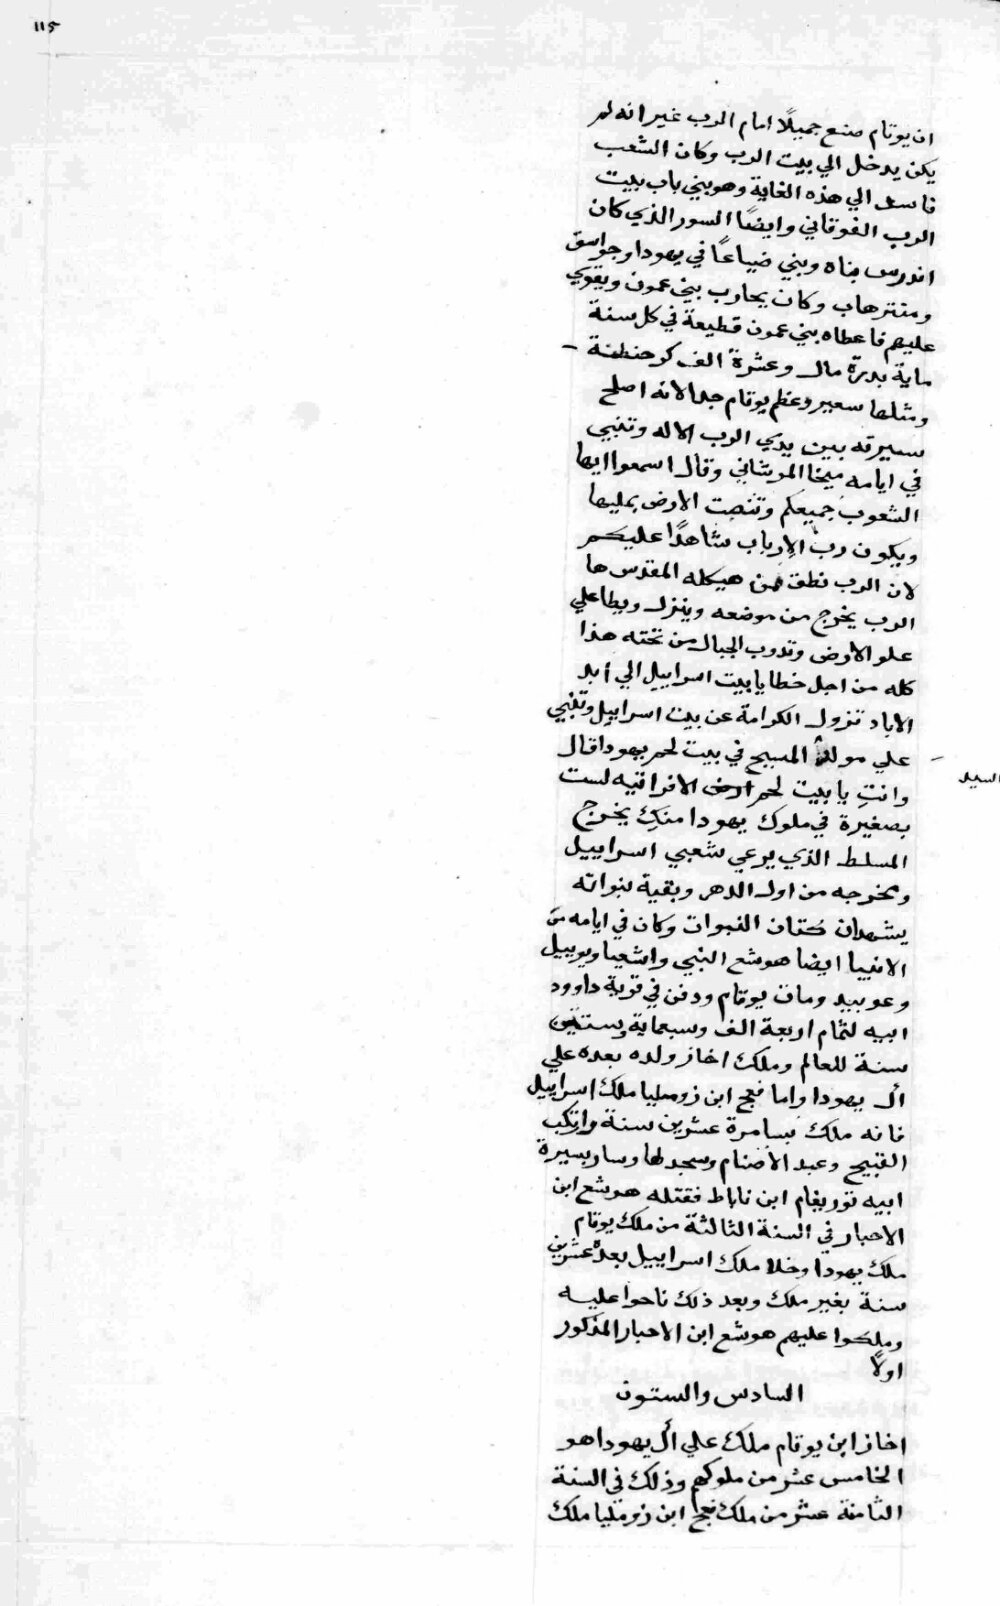 ١١٥
ان يوتام صنع جميلًا امام الرب غير انه لم
يكن يدخل الي بيت الرب وكان الشعب
فاسد الي هذه الغاية وهو بني باب بيت
الرب الفوقاني وايضًا السور الذي كان
اندرس بناه وبني ضياعًا في يهودا وجواسق
ومنتزهات وكان يحارب بني عمون ويقوي
عليهم فاعطاه بني عمون قطيعة في كل سنة
ماية بدرة مال وعشرة الف كر حنطة
ومثلها سعير وعظم يوتام جدا لانه اصلح
سيرته بين يدي الرب الاله وتنبي
في ايامه ميخا المريشاني وقال اسمعوا ايها
الشعوب جميعكم وتنصت الارض بمليها
ويكون رب الارباب شاهدًا عليكم
لان الرب نطق من هيكله المقدس ها
الرب يخرج من موضعه وينزل ويطا علي
علو الارض وتدوب الجبال من تحته هذا
كله من اجل خطايا بيت اسراييل الي أبد
الاباد تزول الكرامة عن بيت اسراييل وتنبي
علي مولد المسيح في بيت لحم يهودا قال
السيد
وانتِ يا بيت لحم ارض الافراتيه لست
بصغيرة في ملوك يهودا منكِ يخرج
المسلط الذي يرعي شعبي اسراييل
ومخرجه من اول الدهر وبقية نبواته
يشهدان كتاب النبوات وكان في ايامه من
الانبيا ايضا هوشع النبي واشعيا ويوييل
وعوبيد ومات يوتام ودفن في قرية داوود
ابيه لتمام اربعة الف وسبعماية وستين
سنة للعالم وملك اخاز ولده بعده علي
أل يهودا واما فجح ابن زومليا ملك اسراييل
فانه ملك بسامرة عشرين سنة وارتكب
القبيح وعبد الاصنام وسجد لها وسار بسيرة
ابيه توربغام ابن ناباط فقتله هوشع ابن
الاحبار في السنة الثالثة من ملك يوتام
ملك يهودا وخلا ملك اسراييل بعده عشرين
سنة بغير ملك وبعد ذلك ناحوا عليه
وملكوا عليهم هوشع ابن الاحبار المذكور
اولًا
السادس والستون
اخاز ابن يوتام ملك علي أل يهودا هو
الخامس عشر من ملوكهم وذلك في السنة
الثامنة عشر من ملك فجح ابن زومليا ملك